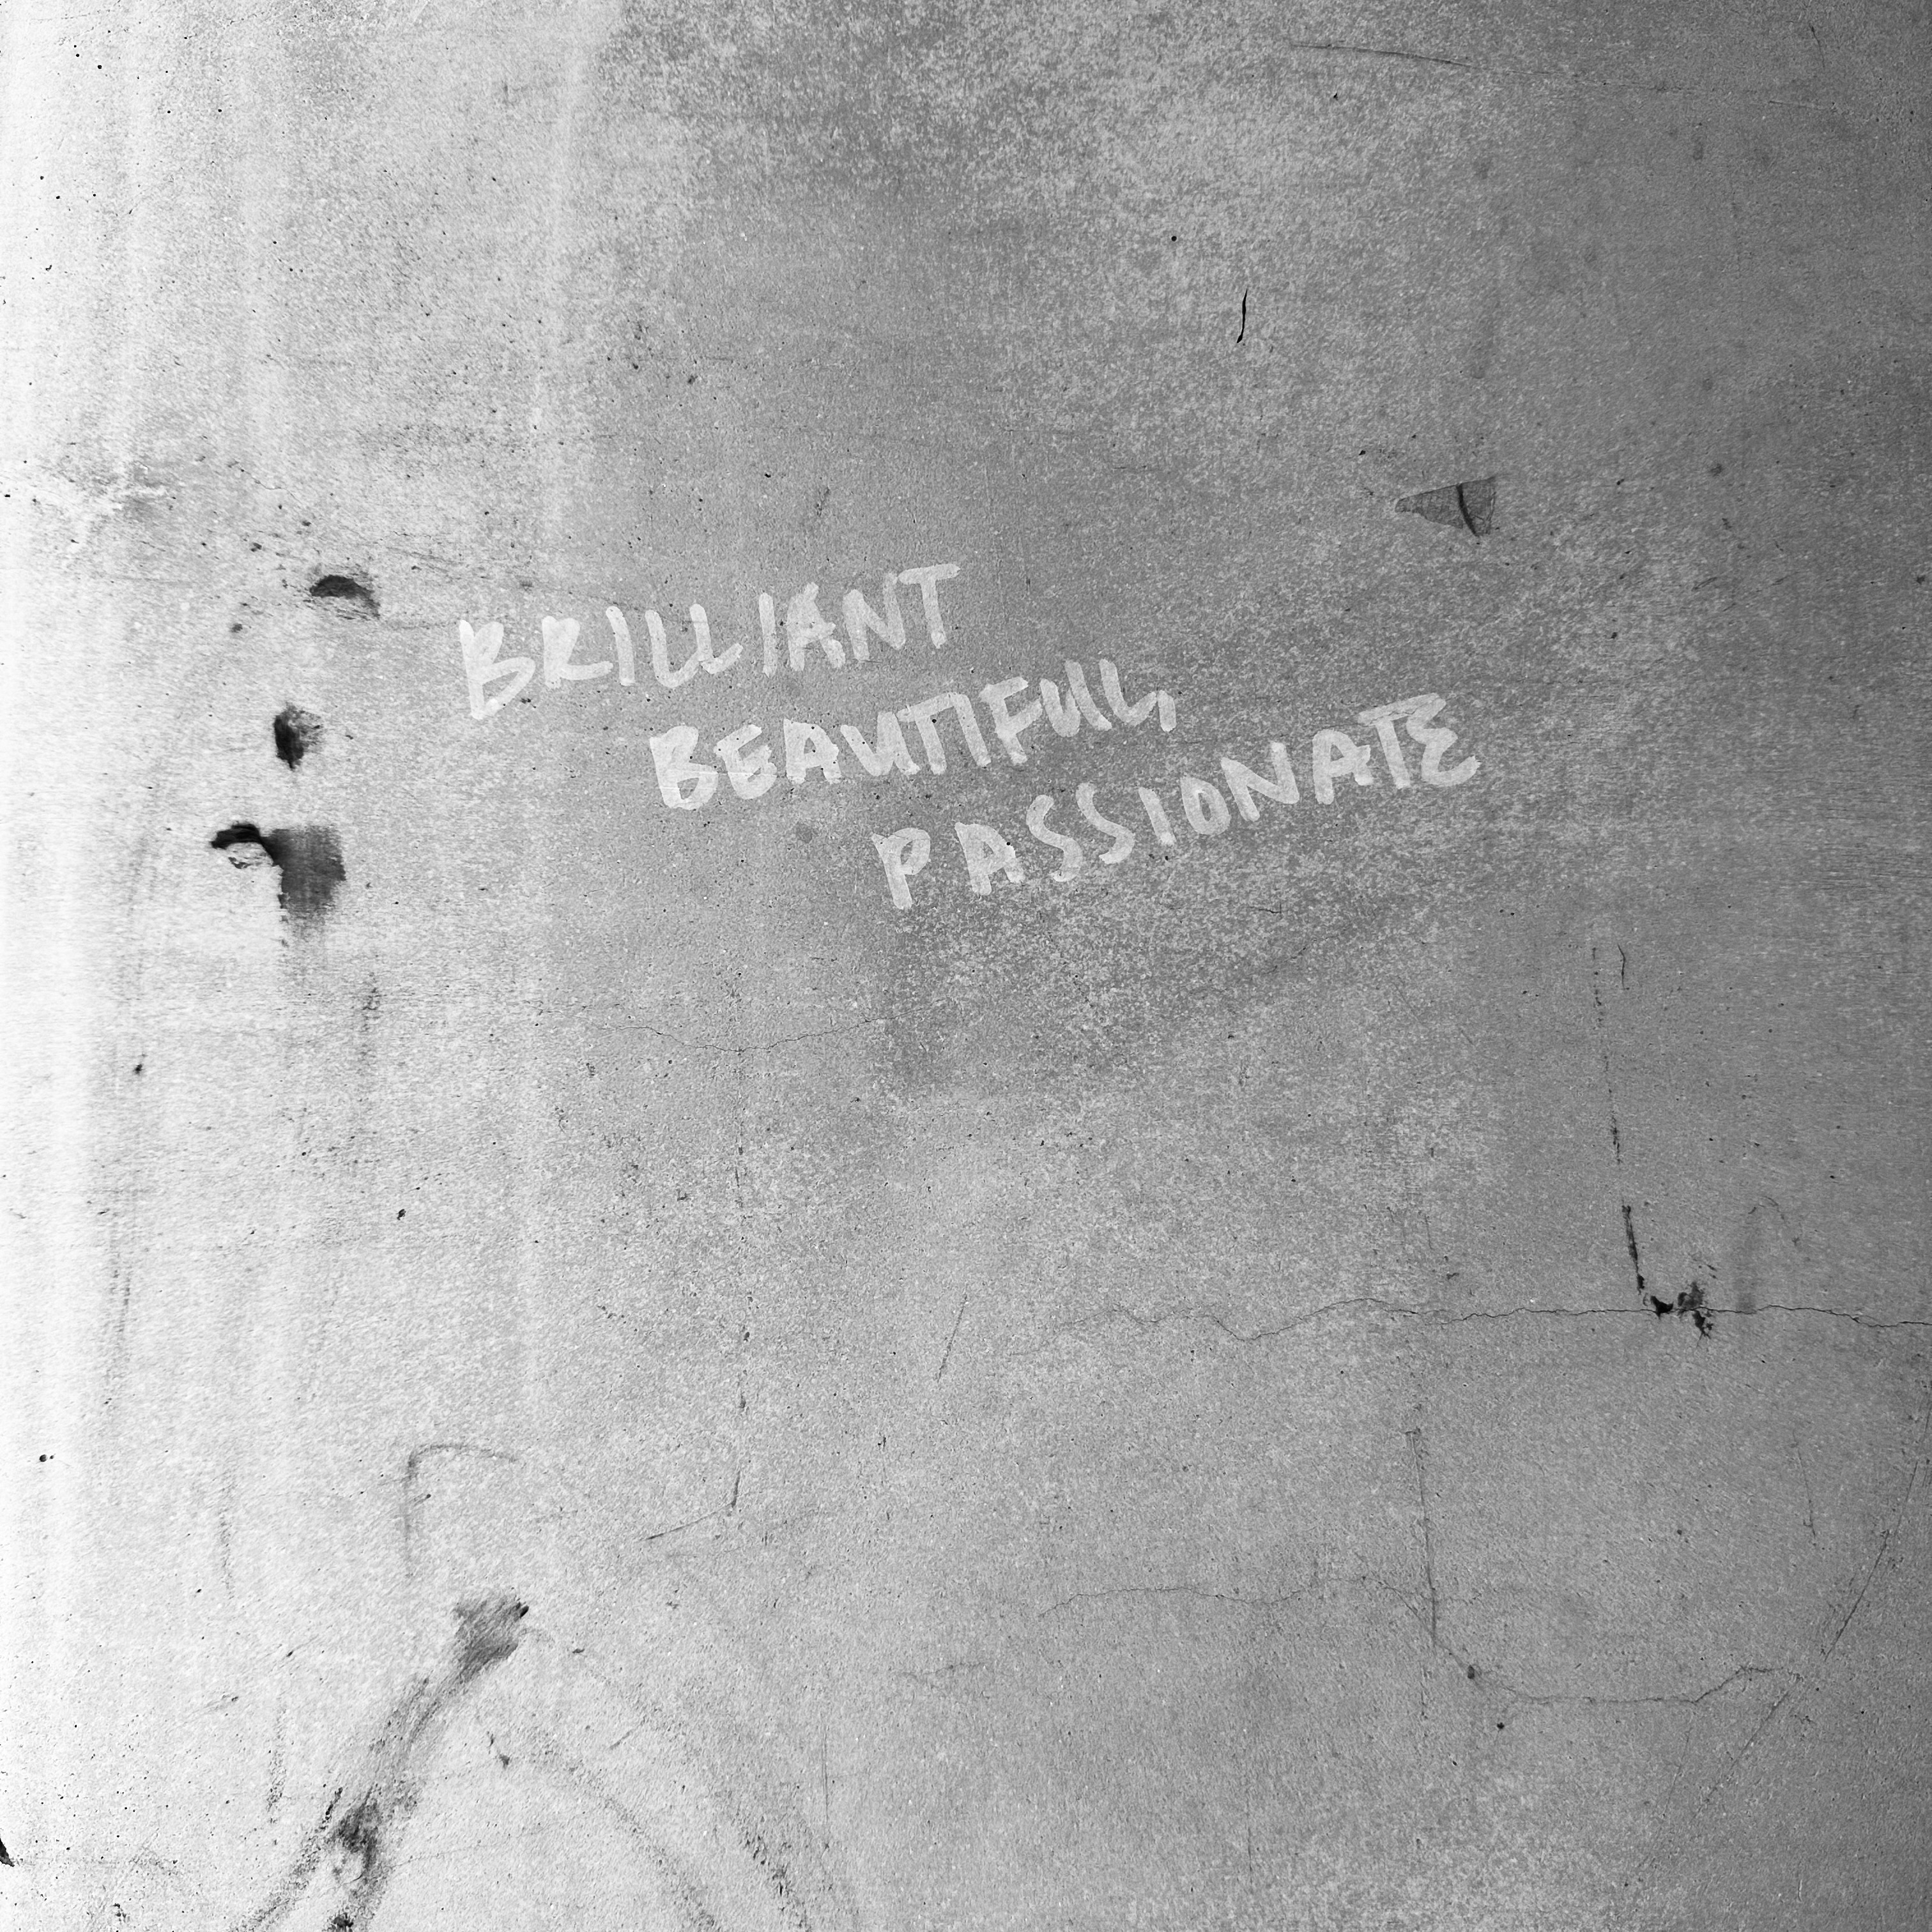 BRILLIANT
BEAUTIFUL,
PASSIONATE